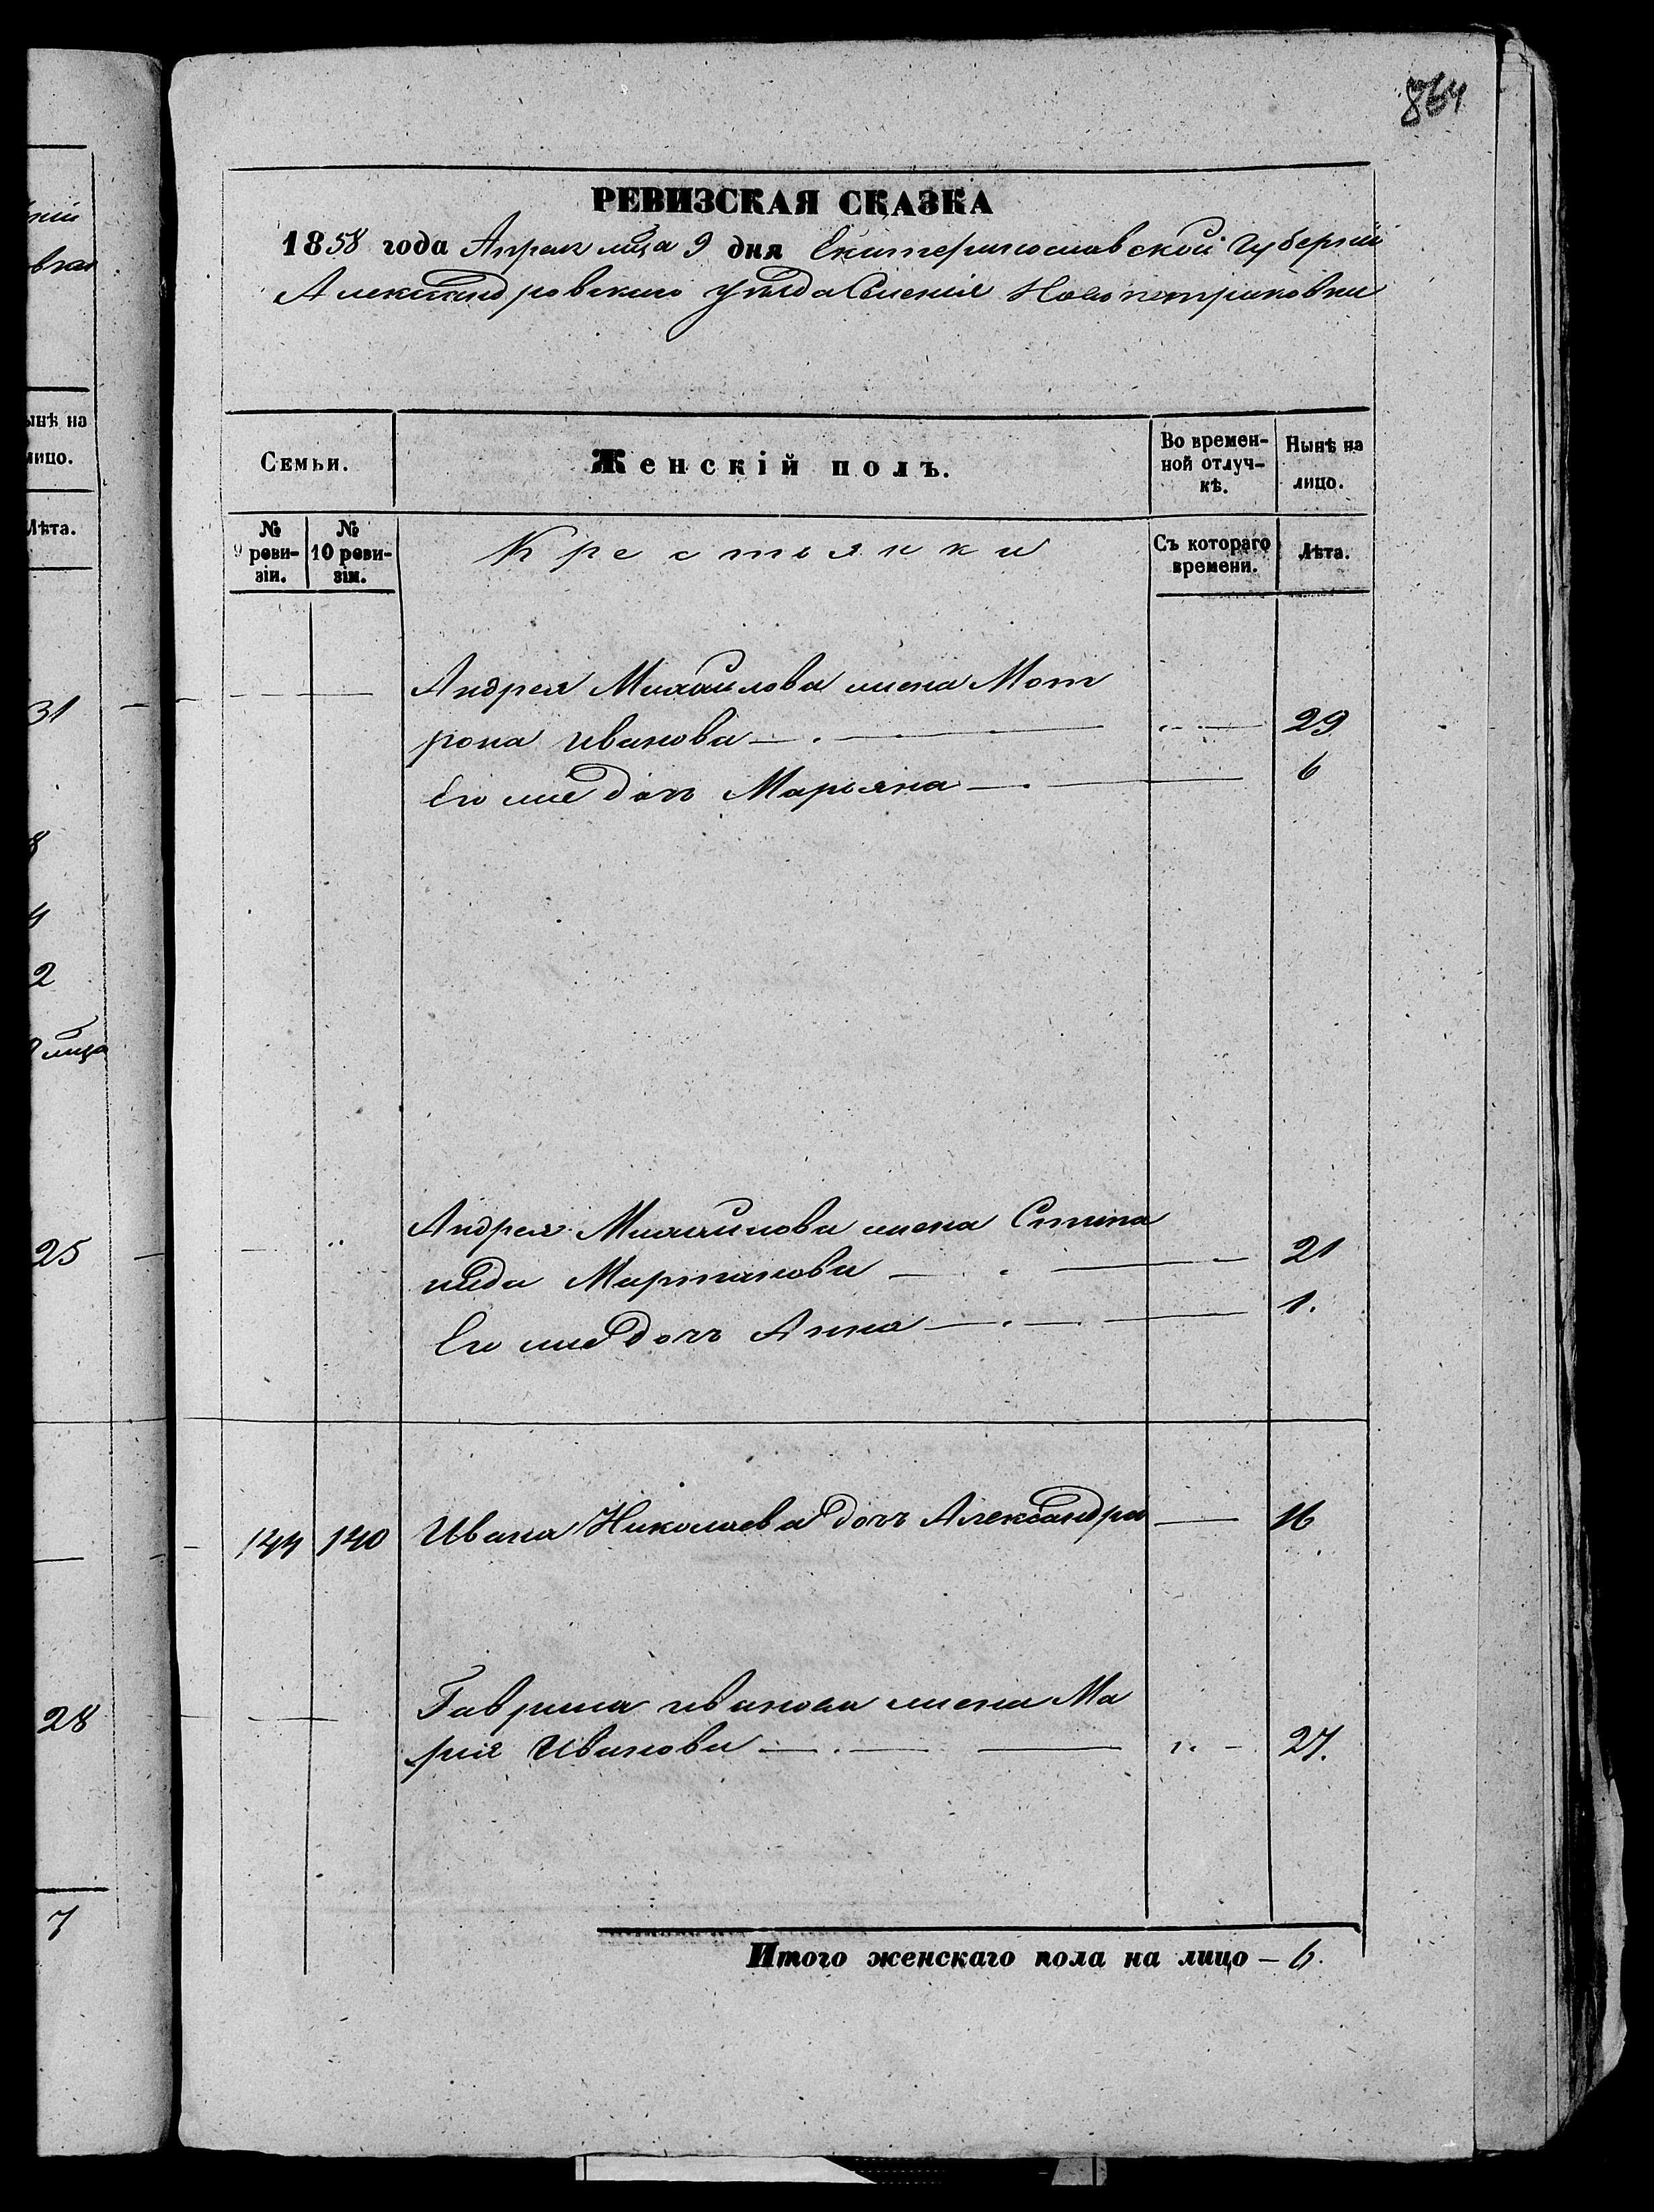 864
РЕВИЗСКАЯ СКАЗКА
1858 года Апреля м̃ца 9 дня Екатеринославской Губерніи
Александровскаго уѣзда Селенія Новопетриковки
Семьи. Женскій полъ. Во времен-ной отлуч-кѣ. Нынѣ на лицо.
№ 9 реви-зіи. № 10 реви-зіи. Крестьянки Съ котораго времени. Лѣта.
Андрея Михайлова жена Мот
рона Иванова — 29
Его же дочь Марьяна — 6
Андрея Михайлова жена Степа
нида Мартинова — 21
Его же дочь Анна — 1.
144 140 Ивана Николаева дочь Александра — 16
Гаврила иванова жена Ма
рія Иванова — 27.
Итого женскаго пола на лицо — 6.
ынѣ на
лицо.
Лѣта.
31
8
4
2
мца
25
28
7